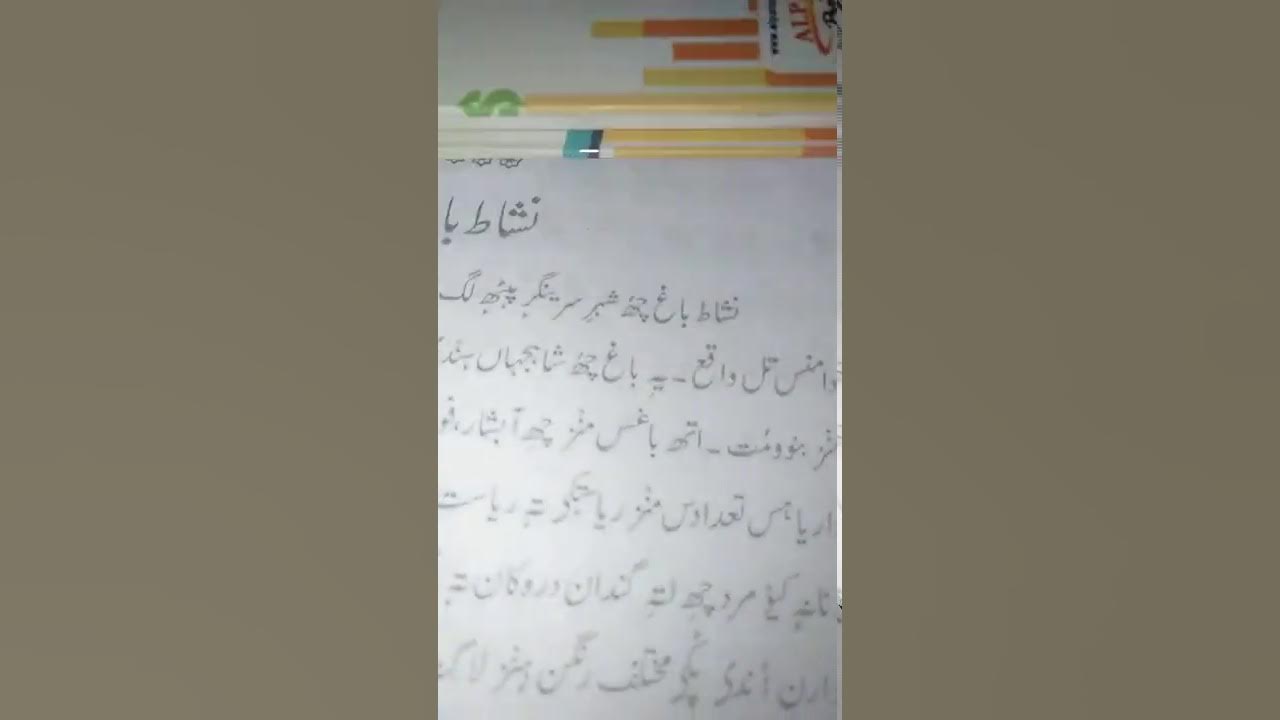 www.
ALP
نشاط با
نشاط باغ چھُ شہرِ سرینگرِ پیٹھٕ لگ
دامنس تل واقع۔ یہِ باغ چھُ شاہجہاں ہند
منز بنوومُت۔ اتھ باغس منز چھِ آبشار، فو
داریاہس تعدادس منز ریاستکؠ تہٕ ریاست
مرد چھِ لتہِ گندان دروکان تہٕ
ارن اُندؠ پٔکؠ مختلف رنگن ہنز لاگنہٕ